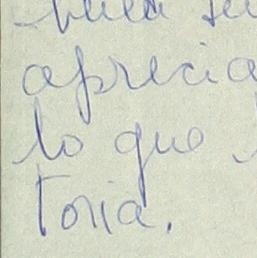 aprecia
lo que
toria.